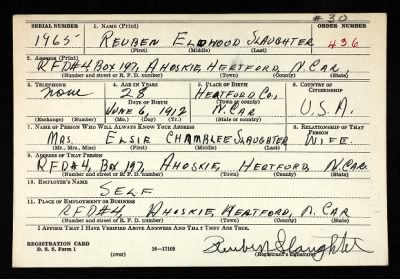 #30
SERIAL NUMBER 1. NAME (Print) ORDER NUMBER
1965 REUBEN ELDWOOD SLAUGHTER 436
(First) (Middle) (Last)
2. ADDRESS (Print)
RFD#4, BOX 197, AHOSKIE, HERTFORD, N.CAR.
(Number and street or R. F. D. number) (Town) (County) (State)
3. TELEPHONE 4. AGE IN YEARS 5. PLACE OF BIRTH 6. COUNTRY OF CITIZENSHIP
none 28 HERTFORD CO.,
DATE OF BIRTH (Town or county)
JUNE 6, 1912 N.CAR U.S.A.
(Exchange) (Number) (Mo.) (Day) (Yr.) (State or country)
7. NAME OF PERSON WHO WILL ALWAYS KNOW YOUR ADDRESS 8. RELATIONSHIP OF THAT PERSON
MRS. ELSIE CHAMBLEE SLAUGHTER WIFE.
(Mr., Mrs., Miss) (First) (Middle) (Last)
9. ADDRESS OF THAT PERSON
RFD#4, BOX 197, AHOSKIE, HERTFORD, N.CAR.
(Number and street or R. F. D. number) (Town) (County) (State)
10. EMPLOYER'S NAME
SELF
11. PLACE OF EMPLOYMENT OR BUSINESS
RFD#4, AHOSKIE, HERTFORD, N.CAR
(Number and street or R. F. D. number) (Town) (County) (State)
I AFFIRM THAT I HAVE VERIFIED ABOVE ANSWERS AND THAT THEY ARE TRUE.
REGISTRATION CARD
D. S. S. Form 1 (over) 16—17105 Reuben Slaughter
(Registrant's signature)